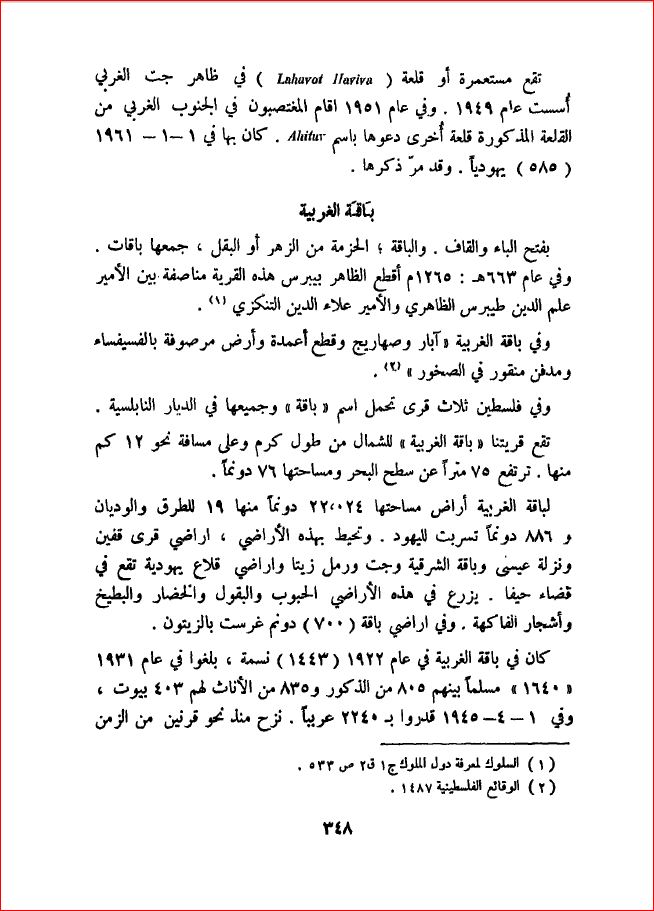 تقع مستعمرة أو قلعة ( Lahavot Haviva ) في ظاهر جت الغربي
أُسست عام ١٩٤٩ . وفي عام ١٩٥١ اقام المغتصبون في الجنوب الغربي من
القلعة المذكورة قلعة أُخرى دعوها باسم Ahitur . كان بها في ١ –١ – ١٩٦١
( ٥٨٥ ) يهودياً . وقد مرّ ذكرها .
باقة الغربية
بفتح الباء والقاف . والباقة ؛ الحزمة من الزهر أو البقل ، جمعها باقات .
وفي عام ٦٦٣هـ : ١٢٦٥م أقطع الظاهر بيبرس هذه القرية مناصفة بين الأمير
علم الدين طيبرس الظاهري والأمير علاء الدين التنكزي (١) .
وفي باقة الغربية « آبار وصهاريج وقطع أعمدة وأرض مرصوفة بالفسيفساء
ومدفن منقور في الصخور » (٢) .
وفي فلسطين ثلاث قرى تحمل اسم « باقة » وجميعها في الديار النابلسية .
تقع قريتنا « باقة الغربية » للشمال من طول كرم وعلى مسافة نحو ١٢ كم
منها . ترتفع ٧٥ متراً عن سطح البحر ومساحتها ٧٦ دونماً .
لباقة الغربية أراض مساحتها ٢٢،٠٢٤ دونماً منها ١٩ للطرق والوديان
و ٨٨٦ دونماً تسربت لليهود . وتحيط بهذه الأراضي ، اراضي قرى قفين
ونزلة عيسى وباقة الشرقية وجت ورمل زيتا واراضي قلاع يهودية تقع في
قضاء حيفا . يزرع في هذه الأراضي الحبوب والبقول والخضار والبطيخ
وأشجار الفاكهة . وفي اراضي باقة ( ٧٠٠ ) دونم غرست بالزيتون .
كان في باقة الغربية في عام ١٩٢٢ (١٤٤٣) نسمة ، بلغوا في عام ١٩٣١
« ١٦٤٠ » مسلماً بينهم ٨٠٥ من الذكور و٨٣٥ من الأناث لهم ٤٠٣ بيوت ،
وفي ١ – ٤– ١٩٤٥ قدروا بـ ٢٢٤٠ عربياً . نزح منذ نحو قرنين من الزمن
( ١ ) السلوك لمعرفة دول الملوك ج١ ق٢ ص ٥٣٣ .
( ٢ ) الوقائع الفلسطينية ١٤٨٧ .
٣٤٨